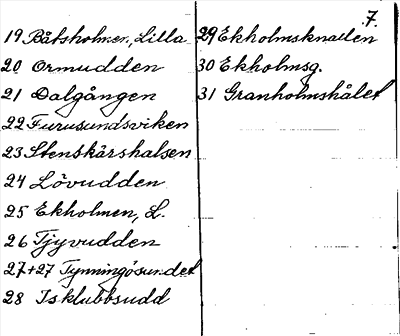 7.
19 Båtsholmen, Lilla
20 Ormudden
21 Dalgången
22 Furusundsviken
23 Stenskärshalsen
24 Lövudden
25 Ekholmen, L.
26 Tjyvudden
27+27 Tynningösundet
28 Isklubbsudd
29 Ekholmsknallen
30 Ekholmsg.
31 Granholmshålet